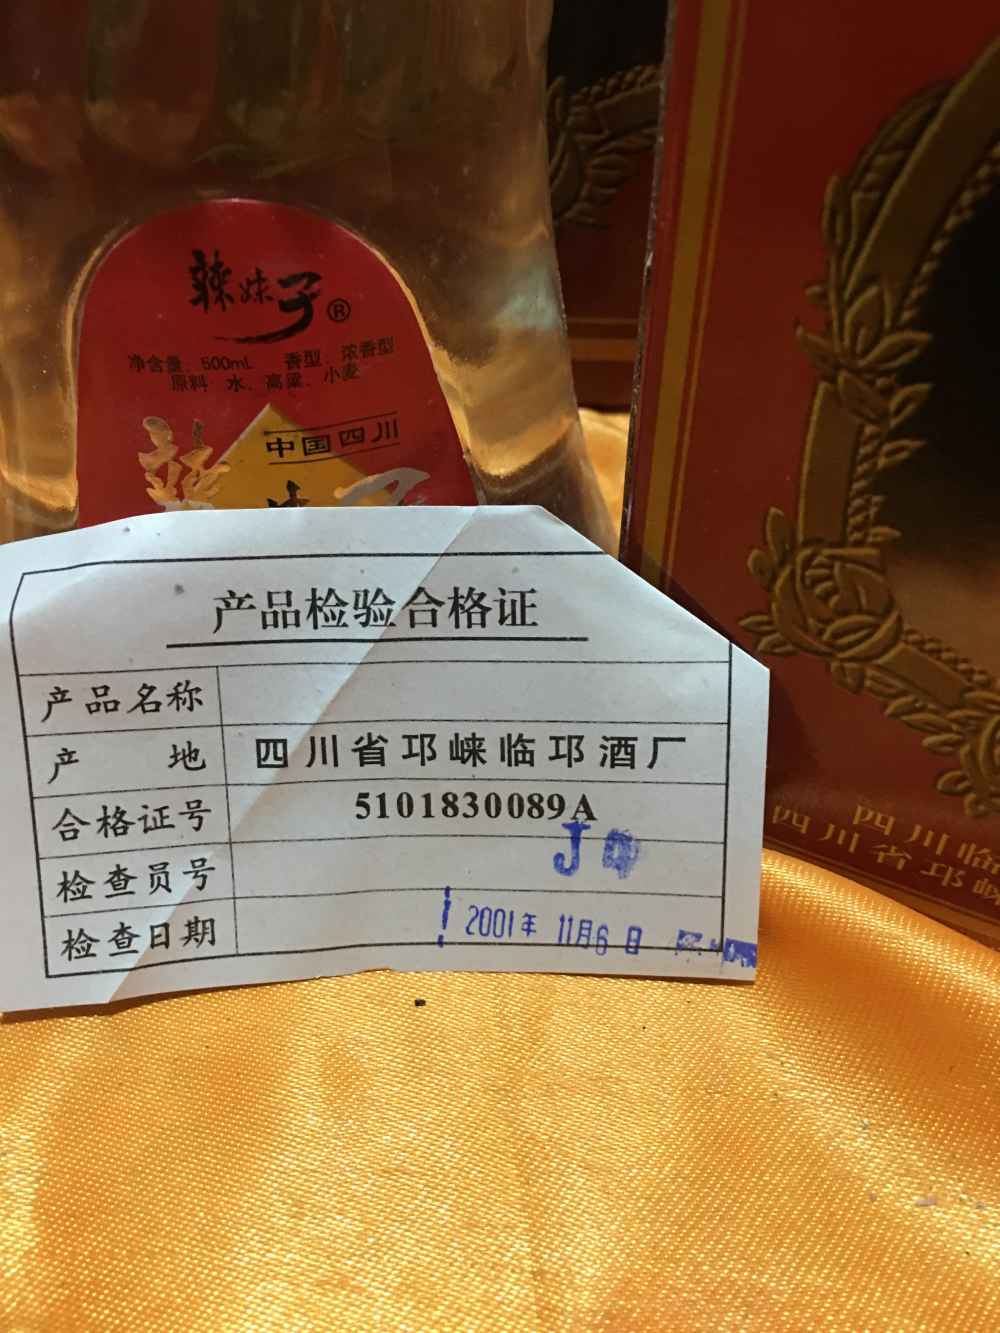 辣妹子®
净含量：500mL 香型：浓香型
原料：水、高粱、小麦
中国四川
辣妹子
产品检验合格证
产品名称
产 地 四川省邛崃临邛酒厂
合格证号 5101830089A
检查员号 J
检查日期 2001年 11月6日
四川临
四川省邛崃